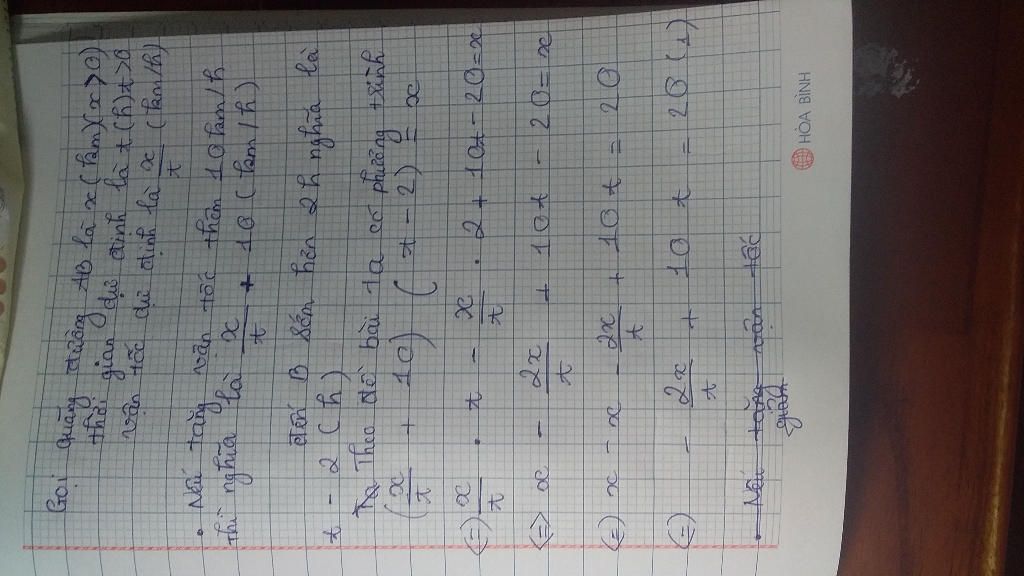 Gọi quãng đường AB là x (km) (x > 0)
thời gian dự định là t (h) t > 0
vận tốc dự định là x/t (km/h)
• Nếu tăng vận tốc thêm 10 km/h
thì nghĩa là x/t + 10 (km/h)
đến B sớm hơn 2h nghĩa là
t - 2 (h)
Theo đề bài ta có phương trình
(x/t + 10) (t - 2) = x
(=) x/t . t - x/t . 2 + 10t - 20 = x
(=) x - 2x/t + 10t - 20 = x
(=) x - x - 2x/t + 10t = 20
(=) - 2x/t + 10t = 20 (1)
• Nếu tăng vận tốc
giảm
HÒA BÌNH